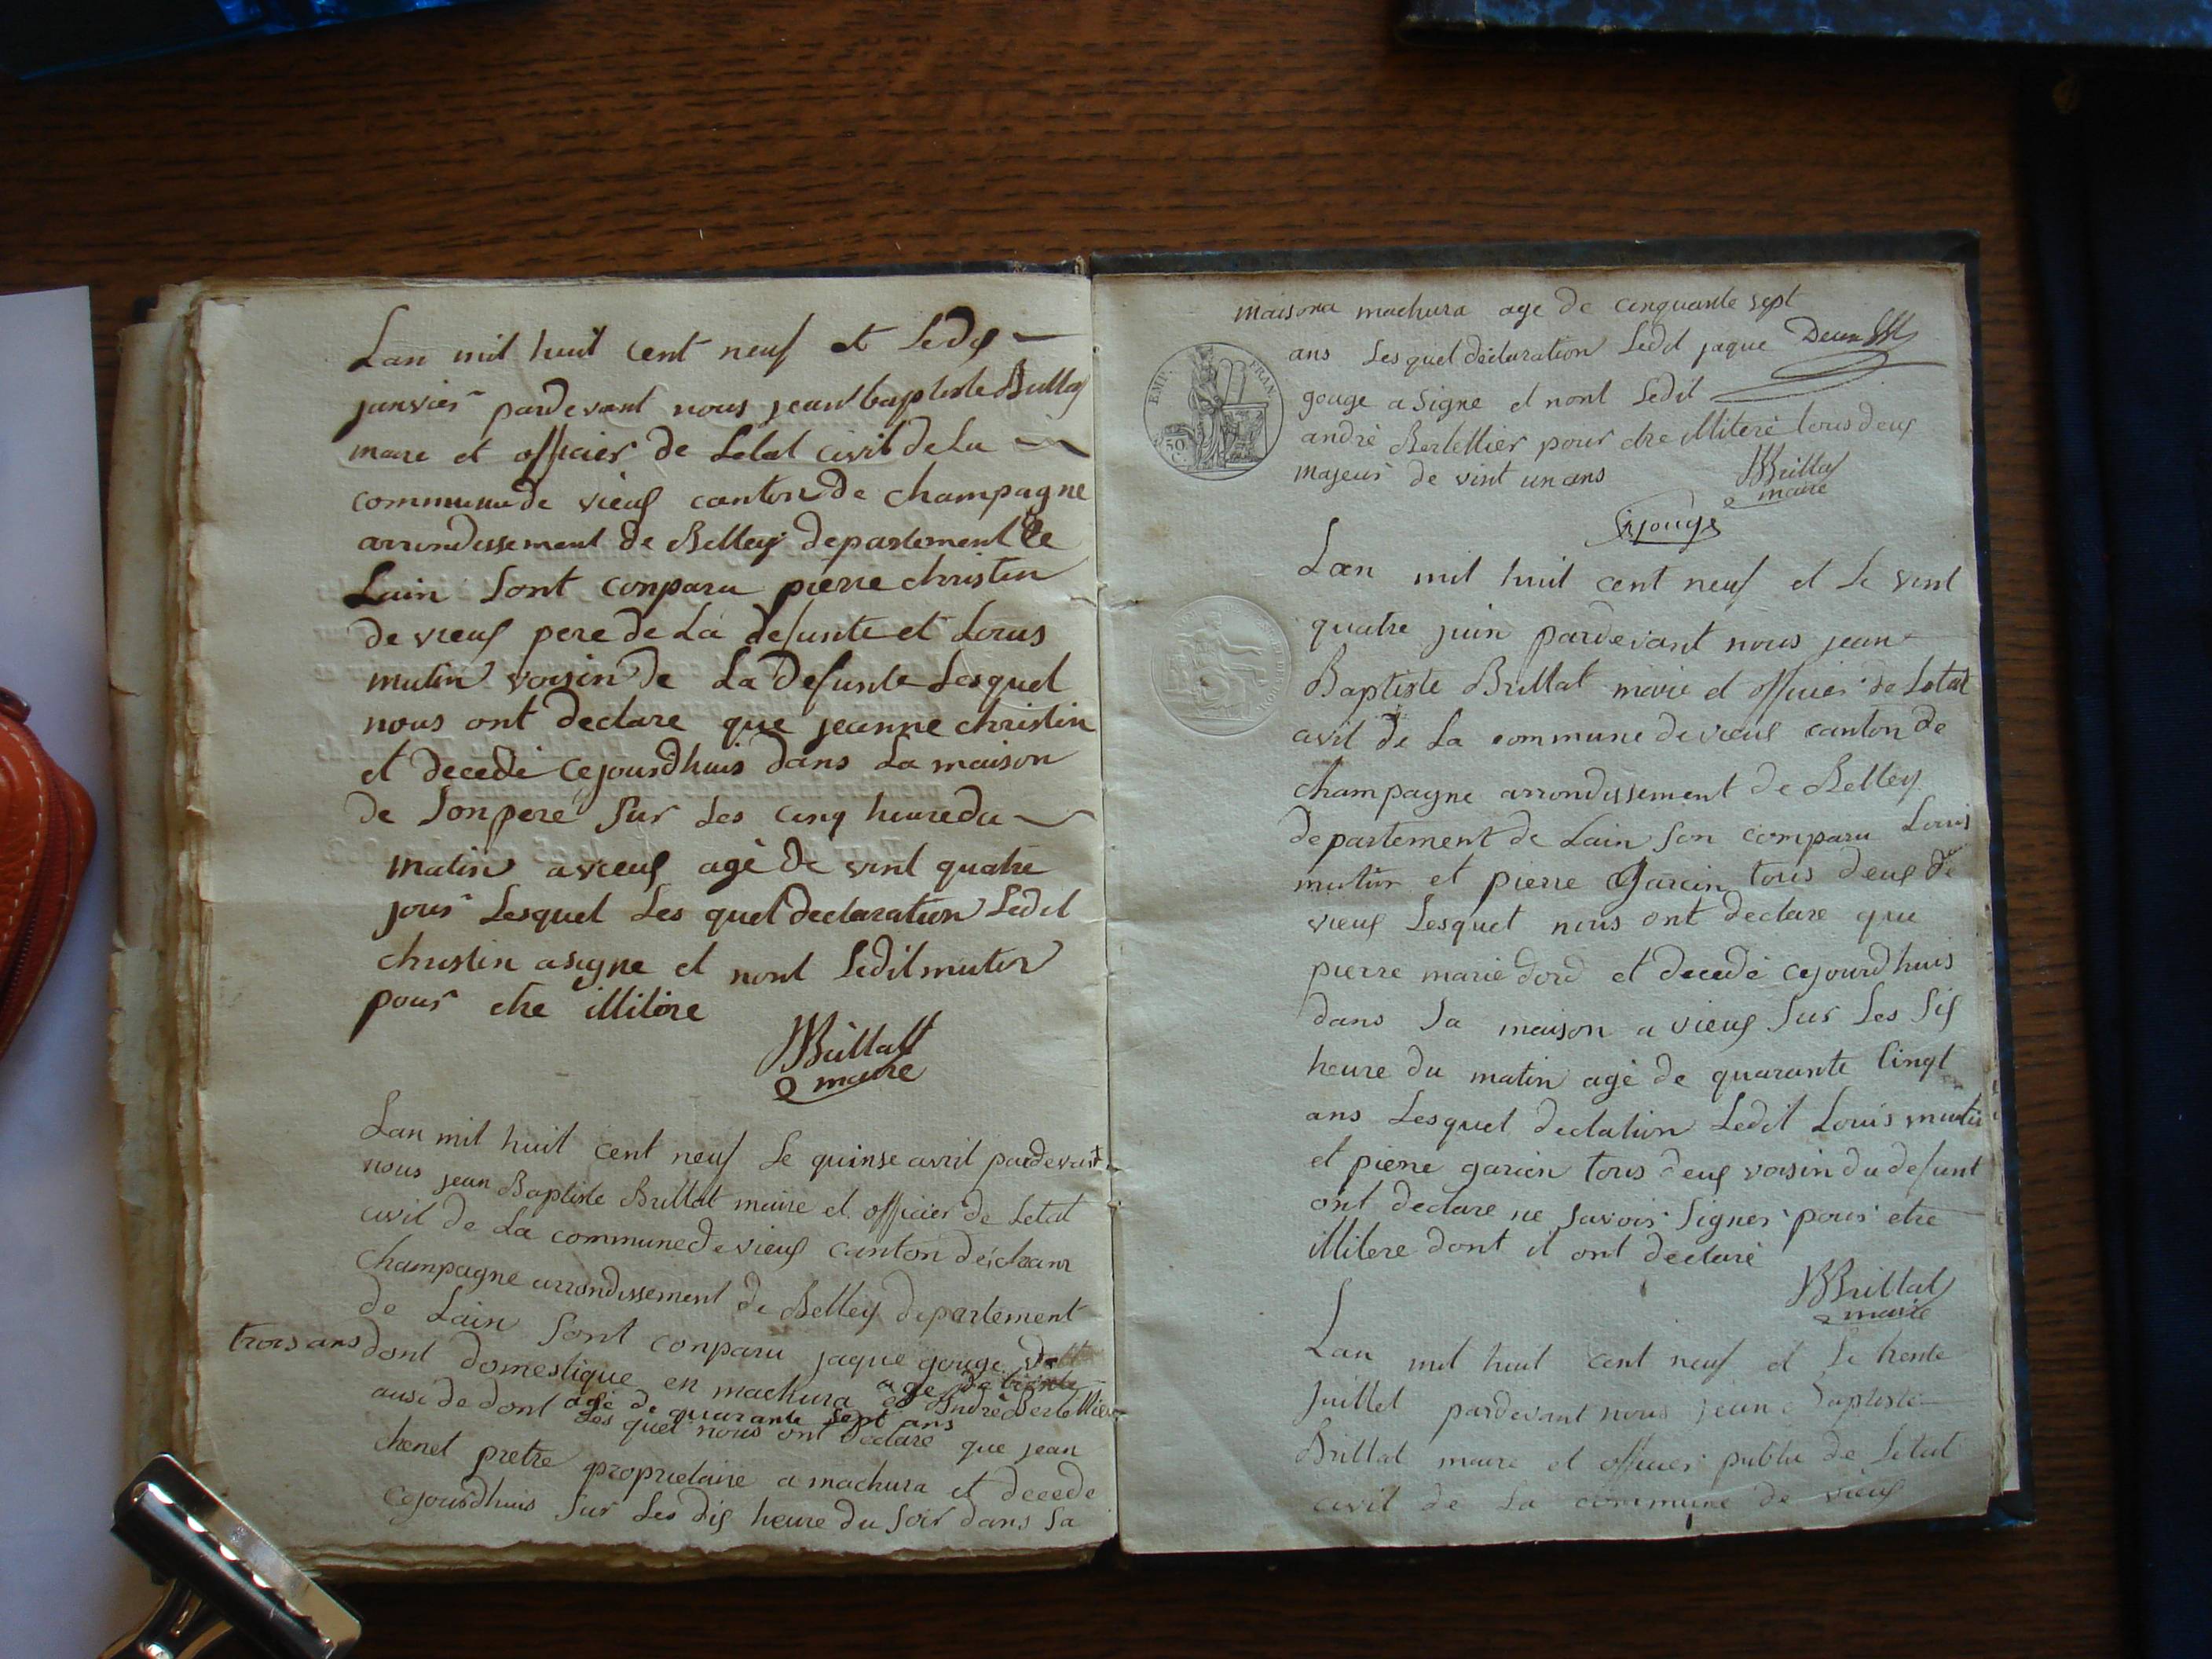 Lan mil huit cent neuf et ledis
janvier pardevant nous jean baptiste Brillat
maire et officier de Letat civil de La
commune de vieus canton de champagne
arrondissement de Belley departement de
Lain Sont conparu pierre christin
de vieus pere de La defunte et Louis
mutin voisin de La defunte Lesquel
nous ont declare que jeanne christin
et decede cejourdhuis dans La maison
de Son pere Sur Les cinq heure du
matin a vieus agé de vint quatre
jour Lesquel Les quel declaration Ledit
christin a signe et nont Ledit mutin
pour etre illitere
JBBrillat
maire
Lan mil huit cent neuf Le quinse avril pardevant
nous jean Baptiste Brillat maire et officier de Letat
civil de La commune de vieus canton de cham
Champagne arrondissement de Belley departement
de Lain Sont conparu jaque gouge
trois ans
dont domestique en machura age de trente
et André Bertellier
ausi de dont agé de quarante sept ans
Les quel nous ont declare que jean
chenet pretre propriétaire a machura et decede
cejourdhuis Sur Les dis heure du Soir dans Sa
maison a machura age de cinquante sept
ans Lesquel declaration Ledit jaque
gouge a Signe et nont Ledit
andré Bertellier pour etre illiteré tous deus
majeur de vint un ans
JBBrillat
maire
gouge
EMP. FRAN.
50
Lan mil huit cent neuf et Le vint
quatre juin pardevant nous jean
Baptiste Brillat maire et officier de Letat
civil de La commune de vieus canton de
champagne arrondissement de Belley
departement de Lain Son comparu Louis
mutin et pierre Garcin tous deus de
vieus Lesquel nous ont declare que
pierre marie dord et decedé cejourdhuis
dans Sa maison a vieus Sur Les Sis
heure du matin agé de quarante Cinqt
ans Lesquel declation Ledit Louis mutin
et pierre garcin tous deus voisin du defunt
ont declare ne Savoir Signer pour etre
illitere dont il ont declaré
JBBrillat
maire
Lan mil huit cent neuf et Le trente
juillet pardevant nous jean Baptiste
Brillat maire et officier public de Letat
civil de La commune de vieus